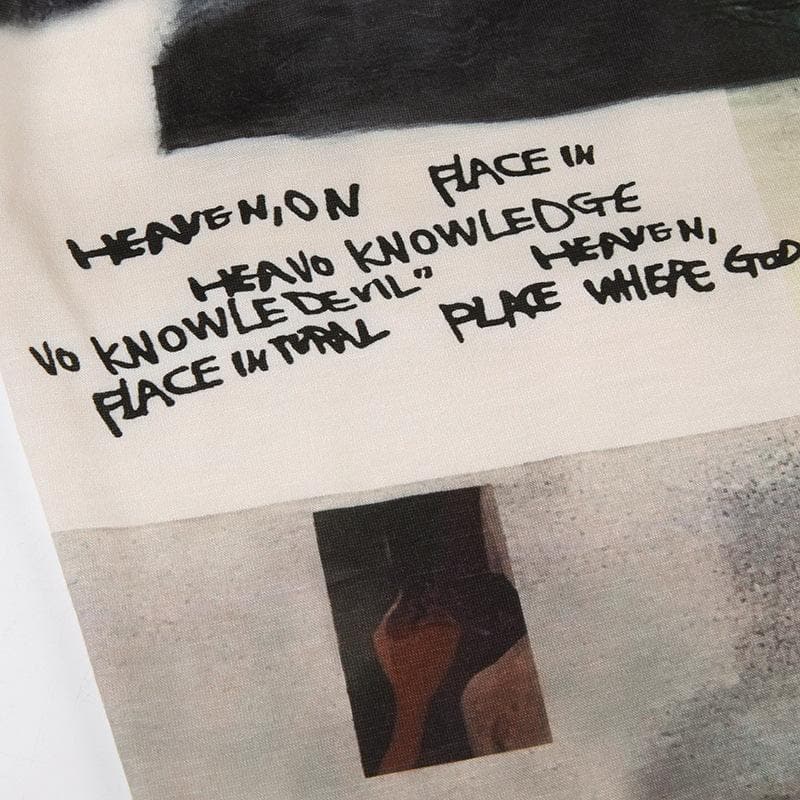 HEAVEN, ON PLACE IN
HEAVO KNOWLEDGE
VO KNOWLEDEVIL" HEAVEN,
PLACE INTURAL PLACE WHERE GOD